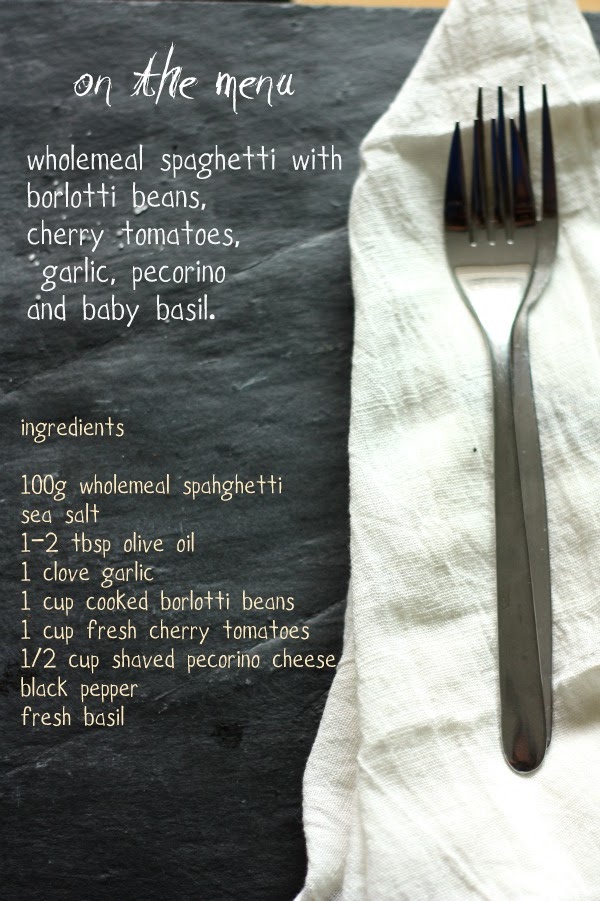 on the menu
wholemeal spaghetti with
borlotti beans,
cherry tomatoes,
garlic, pecorino
and baby basil.
ingredients
100g wholemeal spahghetti
sea salt
1-2 tbsp olive oil
1 clove garlic
1 cup cooked borlotti beans
1 cup fresh cherry tomatoes
1/2 cup shaved pecorino cheese
black pepper
fresh basil